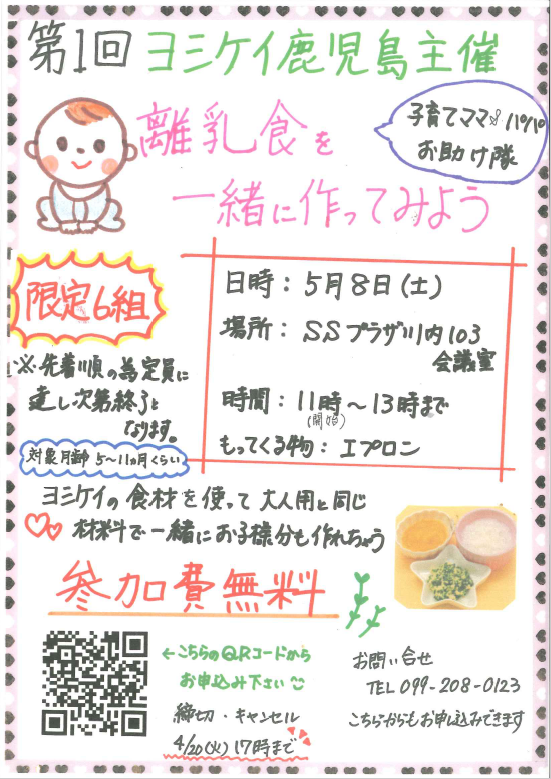 第1回 ヨシケイ鹿児島主催
離乳食を
一緒に作ってみよう
子育てママ&パパ
お助け隊
限定6組
※先着順の為定員に
達し次第終了と
なります。
対象月齢 5~11ヵ月くらい
日時:5月8日(土)
場所:SSプラザ川内103
会議室
時間:11時~13時まで
(開始)
もってくる物:エプロン
ヨシケイの食材を使って 大人用と同じ
材料で一緒にお子様分も作れちゃう
参加費無料
←こちらのQRコードから
お申込み下さい
締切・キャンセル
4/20(火) 17時まで
お問い合せ
TEL 099-208-0123
こちらからもお申し込みできます